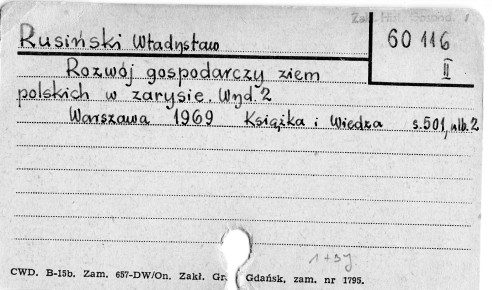 Zakł. Hist. Gospod.
Rusiński Władysław
60 116
II
Rozwój gospodarczy ziem
polskich w zarysie. Wyd. 2
Warszawa 1969 Książka i Wiedza s. 501, nlb. 2
1+5y
CWD. B-15b. Zam. 657-DW/On. Zakł. Gr. Gdańsk, zam. nr 1795.